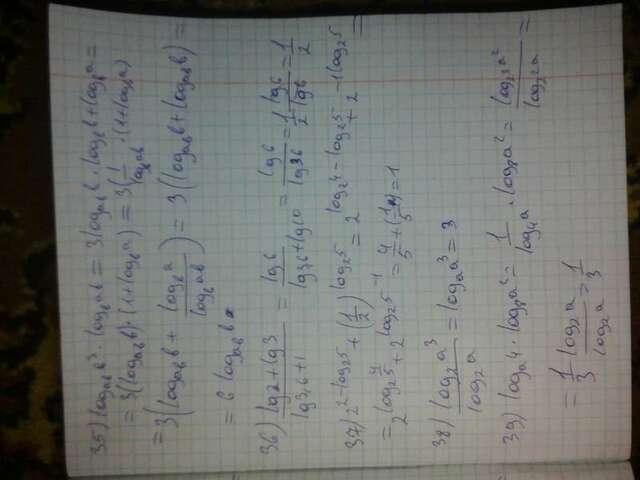 35) log_ab b³ · log_b ab = 3 log_ab b · log_b b + log_b a =
= 3(log_ab b) · (1 + log_b a) = 3(1/log_b ab) · (1 + log_b a)
= 3(log_ab b + log_b a / log_b ab) = 3(log_ab b + log_ab b) =
= 6 log_ab b
36) lg2 + lg3 / lg3,6 + 1 = lg6 / lg3,6 + lg10 = lg6 / lg36 = 1/2 lg6 / lg6 = 1/2
37) 2^(2 - log_2 5) + (1/2)^(log_2 5) = 2^(log_2 4 - log_2 5) + 2^(-1 log_2 5) =
= 2^(log_2 4/5) + 2^(log_2 5^-1) = 4/5 + (1/5) = 1
38) log_2 a³ / log_2 a = log_a a³ = 3
39) log_a 4 · log_8 a² = 1/log_4 a · log_8 a² = log_2³ a² / log_2² a =
= 1/3 log_2 a / log_2 a = 1/3